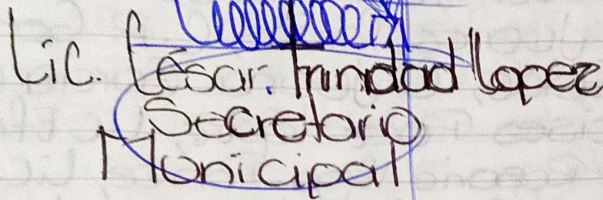 Lic. César. Trinidad Lopez
Secretario
Municipal